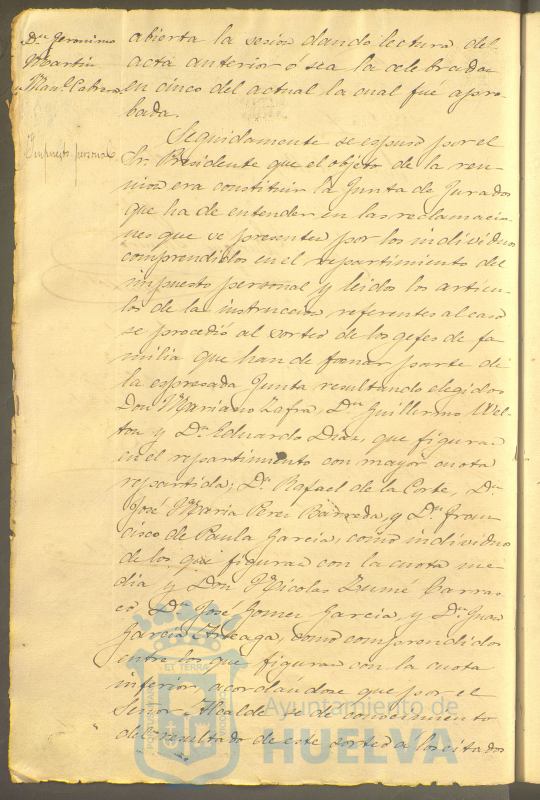 Dn. Geronimo
Martin
Manl. Cabrera
Impuesto personal
abierta la sesion dando lectura del
acta anterior ó sea la celebrada
en cinco del actual la cual fue apro-
bada.
Seguidamente se espuso por el
Sr. Presidente que el objeto de la reu-
nion era constituir la Junta de Jurados
que ha de entender en las reclamacio-
nes que se presenten por los individuos
comprendidos en el repartimiento del
impuesto personal y leidos los articu-
los de la instruccion referentes al caso
se procedió al sorteo de los gefes de fa-
milia que han de formar parte de
la espresada Junta resultando elegidos
Don Mariano Zafra, Dn. Guillermo Wel-
ton y Dn. Eduardo Diaz, que figuran
en el repartimiento con mayor cuota
repartida; Dn. Rafael de la Corte, Dn.
José Maria Perez Barreda, y Dn. Fran-
cisco de Paula Garcia, como individuos
de los que figuran con la cuota me-
dia y Don Nicolas Zumé Carras-
co, Dn. José Gomez Garcia, y Dn. Juan
Garcia Arteaga, como comprendidos
entre los que figuran con la cuota
inferior, acordandose que por el
Señor Alcalde se de conocimiento
del resultado de este sorteo a los citados
ET TERRA
Ayuntamiento de
HUELVA